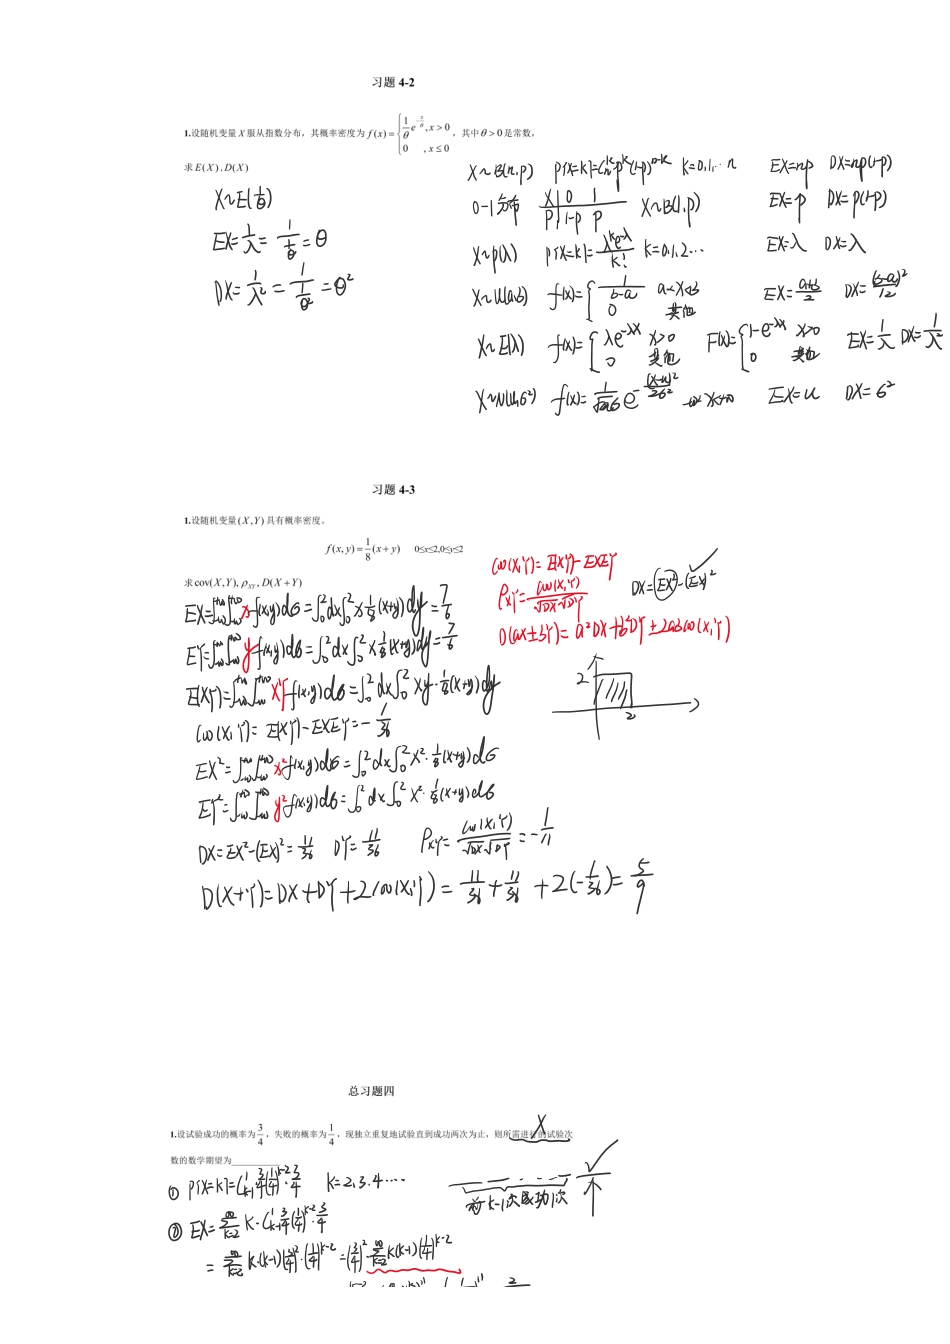 习题 4-2
1.设随机变量 X 服从指数分布，其概率密度为 f(x) = { 1/θ e^{-x/θ}, x > 0
0 , x ≤ 0 ，其中 θ > 0 是常数，
求 E(X) , D(X)
X~E(1/θ)
EX= 1/λ = 1/(1/θ) = θ
DX= 1/λ² = 1/(1/θ²) = θ²
X~B(n,p) P{X=k}=C_n^k p^k (1-p)^{n-k} k=0,1,…n EX=np DX=np(1-p)
0-1分布 X 0 1
P 1-p p X~B(1,p) EX=p DX=p(1-p)
X~p(λ) P{X=k}= λ^k e^{-λ}/k! k=0,1,2… EX=λ DX=λ
X~U(a,b) f(x)={ 1/(b-a) a<x<b
0 其他 EX= (a+b)/2 DX= (b-a)²/12
X~E(λ) f(x)={ λe^{-λx} x>0
0 其他 F(x)={ 1-e^{-λx} x>0
0 其他 EX= 1/λ DX= 1/λ²
X~N(u,6²) f(x)= 1/(√2π 6) e^{-(x-u)²/26²} -∞<x<+∞ EX=u DX=6²
习题 4-3
1.设随机变量 (X,Y) 具有概率密度。
f(x,y) = 1/8 (x+y) 0≤x≤2,0≤y≤2
求 cov(X,Y), ρ_XY, D(X+Y)
cov(X,Y)= E(XY)-EXEY
ρ_XY= cov(X,Y)/(√DX √DY)
D(aX±bY)= a²DX+b²DY±2abcov(X,Y)
DX=EX²-(EX)²
2
2
EX=∫_{-∞}^{+∞}∫_{-∞}^{+∞} x f(x,y)d6 = ∫_0^2 dx∫_0^2 x·1/8(x+y)dy = 7/6
EY=∫_{-∞}^{+∞}∫_{-∞}^{+∞} y f(x,y)d6 = ∫_0^2 dx∫_0^2 x·1/8(x+y)dy = 7/6
E(XY)=∫_{-∞}^{+∞}∫_{-∞}^{+∞} xy f(x,y)d6 = ∫_0^2 dx∫_0^2 xy·1/8(x+y)dy
cov(X,Y)= E(XY)-EXEY = - 1/36
EX²=∫_{-∞}^{+∞}∫_{-∞}^{+∞} x² f(x,y)d6 = ∫_0^2 dx∫_0^2 x²·1/8(x+y)d6
EY²=∫_{-∞}^{+∞}∫_{-∞}^{+∞} y² f(x,y)d6 = ∫_0^2 dx∫_0^2 x²·1/8(x+y)d6
DX=EX²-(EX)²= 11/36 DY= 11/36 ρ_XY= cov(X,Y)/(√DX √DY) = - 1/11
D(X+Y)=DX+DY+2cov(X,Y) = 11/36 + 11/36 + 2(-1/36)= 5/9
总习题四
X
1.设试验成功的概率为 3/4 ，失败的概率为 1/4 ，现独立重复地试验直到成功两次为止，则所需进行的试验次
数的数学期望为________
① P{X=k}=C_{k-1}^1 3/4 (1/4)^{k-2}·3/4 k=2,3,4…
前k-1次成功1次
② EX= Σ_{k=2}^∞ k·C_{k-1}^1 3/4 (1/4)^{k-2}·3/4
= Σ_{k=2}^∞ k·(k-1)(3/4)²·(1/4)^{k-2} = (3/4)²·Σ_{k=2}^∞ k(k-1)(1/4)^{k-2}